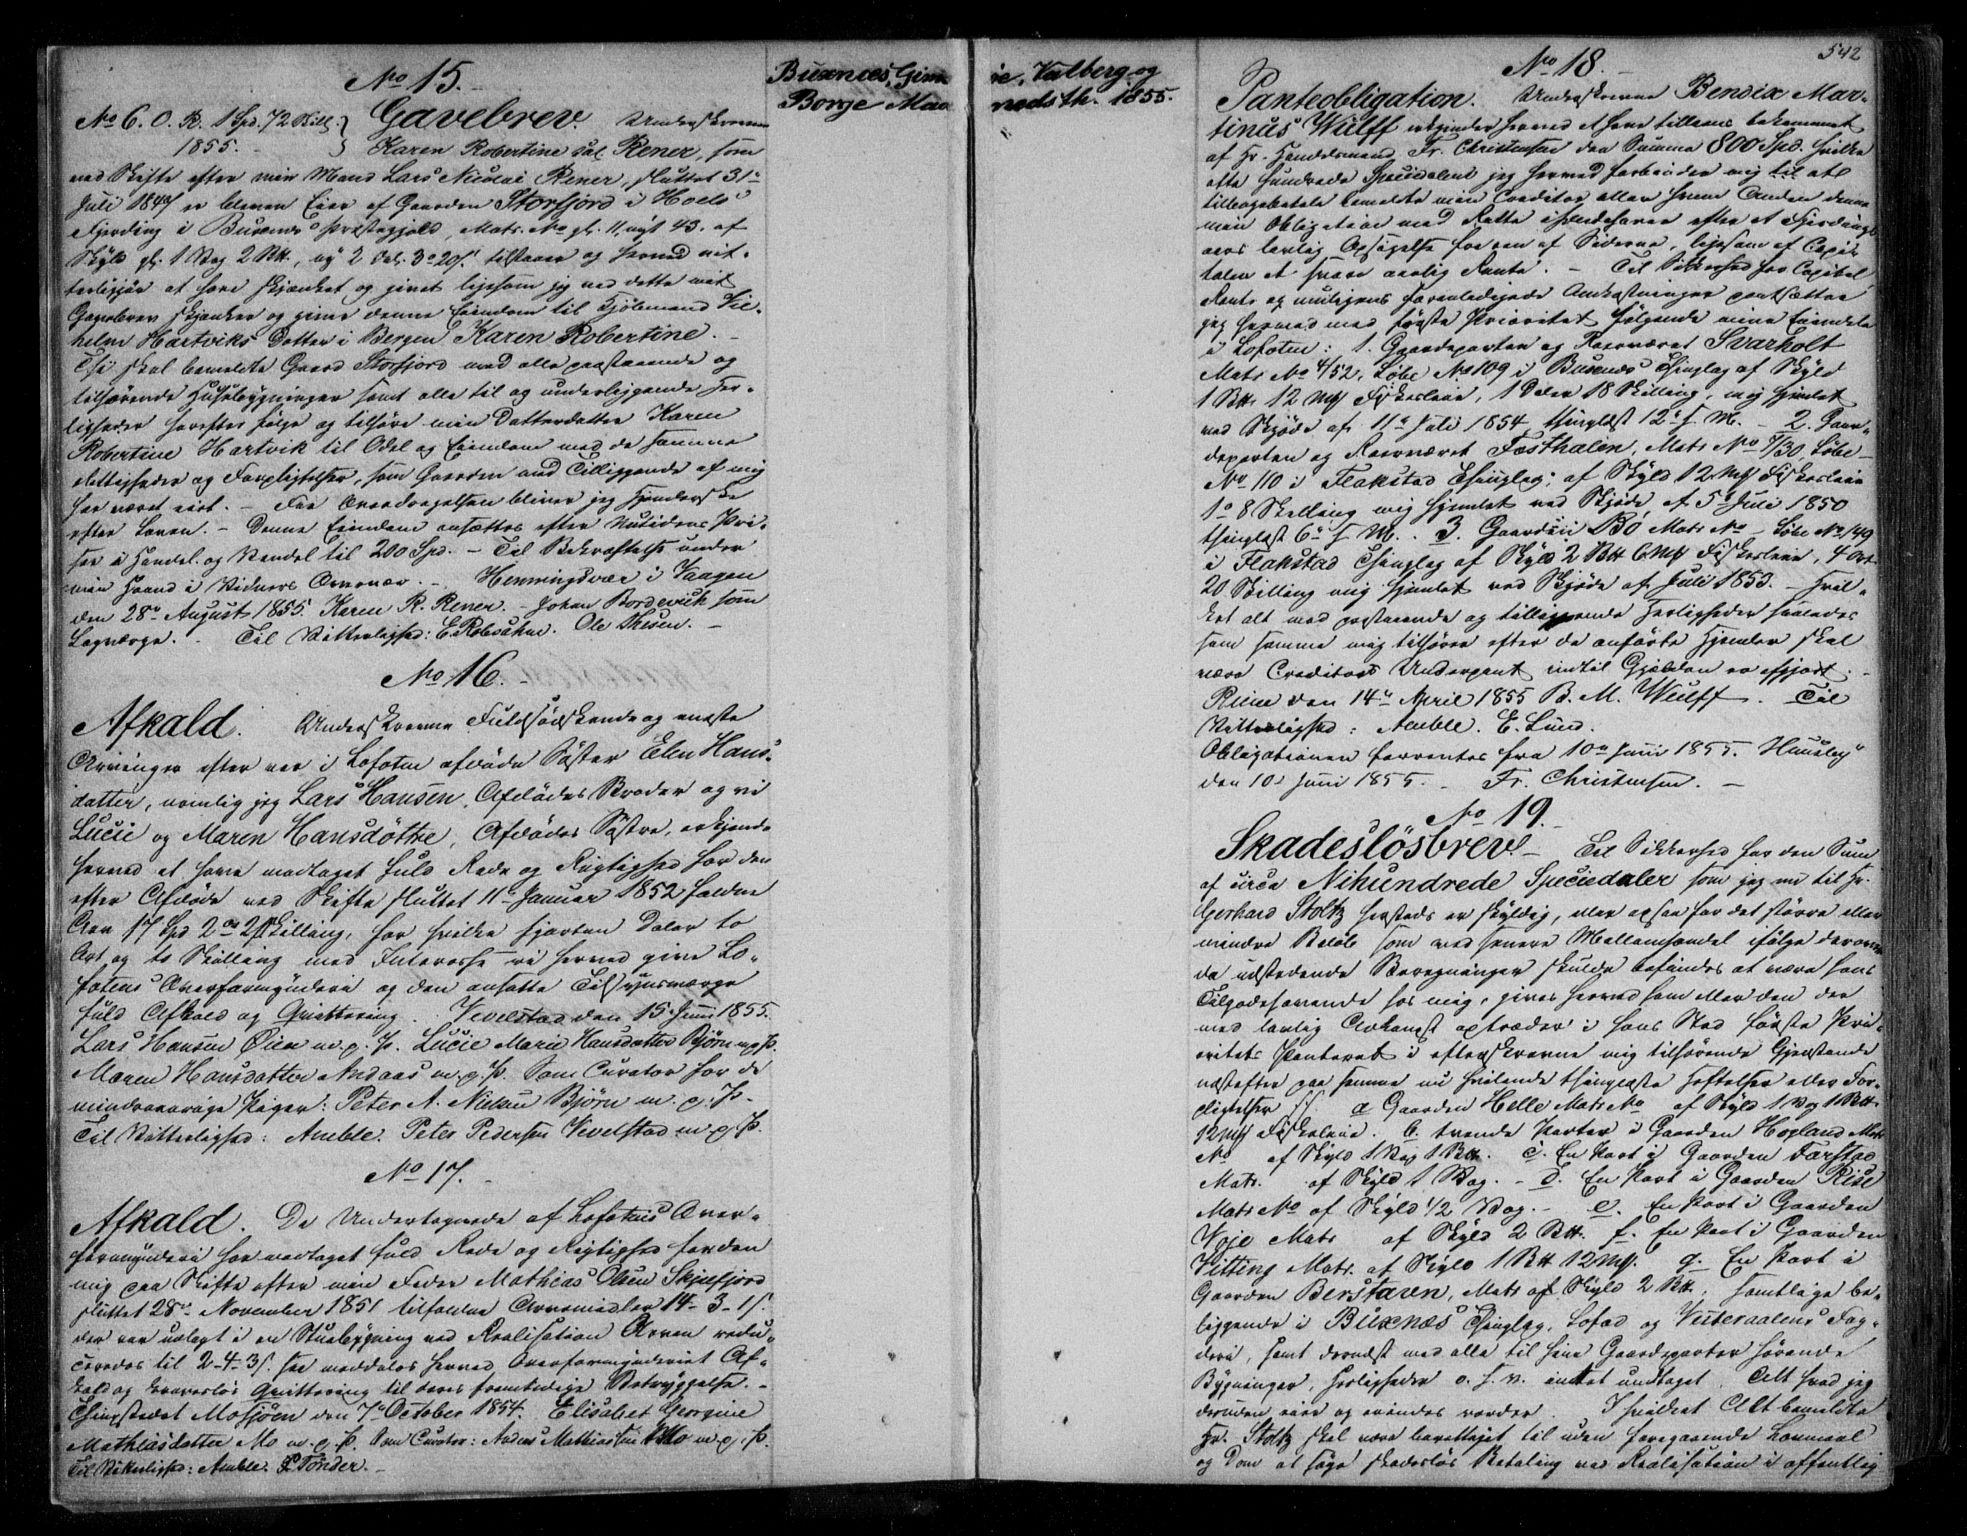 No 15.
No 6. O. R. 1 Spd. 72 Skill. } Gavebrev. Underskrevne
1855. Karen Robertine sal. Rener, som
ved Skifte efter min Mand Lars Nicolai Rener, sluttet 31te
Juli 1847 er bleven Eier af Gaarden Storfjord i Hoels
Fjerding i Buxnæs Præstegjeld, Matr. No gl. 11, nyt 43. af
Skyld gl. 1 Vog 2 B℔., ny 2 Dal. 3 o 20 s. tilstaaer og herved vit-
terliggjør at have skjænket og givet ligesom jeg ved dette mit
Gavebrev skjænker og giver denne Eiendom til Kjøbmand Vil-
helm Hartviks Datter i Bergen Karen Robertine. –
Thi skal bemeldte Gaard Storfjord med alle paastaaende og
tilhørende Huusbygninger samt alle til og underliggende Her-
ligheder herefter følge og tilhøre min Datterdatter Karen
Robertine Hartvik til Odel og Eiendom med de samme
Rettigheder og Forpligtelser, som Gaarden med Tilliggende af mig
har været eiet. – For Overdragelsen bliver jeg Hjemmelske
efter Loven. – Denne Eiendom ansættes efter Nutidens Pri-
ser i Handel og Vandel til 200 Spd. – Til Bekræftelse under
min Haand i Vidners Overvær. – Henningsvær i Vaagen
den 28de August 1855. Karen R. Rener. Johan Bordevick som
Laugværge. – Til Vitterlighed: E. Robsahm. Ole Thesen. –
No 16.
Afkald. Underskrevne Fuldsødskende og eneste
Arvinger efter vor i Lofoten afdøde Søster Elen Hans-
datter, nemlig jeg Lars Hansen, Afdødes Broder og vi
Lucie og Maren Hansdøttre, Afdødes Søstre, erkjende
herved at have modtaget fuld Rede og Rigtighed for den
efter Afdøde ved Skifte sluttet 11te Januar 1852 faldne
Arv 14 Spd 2 ort 2 Skilling, for hvilke fjorten Daler to
Ort og to Skilling med Interesse vi herved give Lo-
fotens Overformynderi og den ansatte Tilsynsværge
fuld Afkald og Quittering. Vevelstad den 15 Juni 1855.
Lars Hansen Øien m. p. P. Lucie Marie Hansdatter Bjørn m p P.
Maren Hansdatter Andaas m. p. P. Som Curator for de
mindreaarige Piger: Peter A. Nielsen Bjørn m. p. P.
Til Vitterlighed: Amble. Peter Pedersen Vevelstad m. p. P.
No 17.
Afkald. De Undertegnede af Lofotens Over-
formynderi har modtaget fuld Rede og Rigtighed for den
mig paa Skifte efter min Fader Mathias Olsen Skjelfjord
sluttet 28de November 1851 tilfaldne Arvemidler 14 - 3 - 1 s.
der var udlagt i en Stuebygning ved Realisation Arven redu-
ceredes til 2 - 4 - 3 s. saa meddeles herved Overformynderiet Af-
kald og kravesløs Quittering til deres fremtidige Betryggelse. –
Thingstedet Mosjøen den 7de October 1854. Elisabet Georgine
Mathiasdatter Mo m. p. P. Som Curator: Anders Mathiassen Mo m. p. P.
Til Vitterlighed: Amble. P Tønder. –
Buxnæs, Gims
øe, Valberg og
Borge Maa
nedsth. 1855.
542
No 18. –
Panteobligation. Underskrevne Bendix Mar-
tinus Wulff udgiver herved at have tillaans bekommet
af Hr. Handelsmand Fr. Christensen den Summa 800 Spd. hvilke
otte Hundrede Speciedaler jeg herved forbinder mig til at
tilbagebetale bemeldte min Creditor eller hvem Anden denne
min Obligation med Rette ihændehaver efter et Fjerdings
aars lovlig Opsigelse fra en af Siderne, ligesom af Capi-
talen at svare aarlig Rente. – Til Sikkerhed for Capital
Rente og muligens foranledigede Omkostninger pantsætter
jeg herved med første Prioritet følgende mine Eiendele
i Lofoten: 1. Gaardeparten og Reerværet Svarholt
Matr No 4/52, Løbe No 109 i Buxnæs Thinglag af Skyld
1 B℔. 12 Mk Fiskeleie, 1 Daler 18 Skilling, mig hjemlet
ved Skjøde af 11te Juli 1854 thinglæst 12te s. M. – 2. Gaar-
departen og Reerværet Fosthalen, Matr No 7/30, Løbe
No 110 i Flakstad Thinglag; af Skyld 12 Mk Fiskeleie
1 o 8 Skilling mig hjemlet ved Skjøde af 5te Juli 1850
thinglæst 6te s. M. . 3. Gaarden i Bø, Matr No – Løbe No 149
i Flakstad Thinglag af Skyld 2 B℔ 6 Mk Fiskeleie, 4 Ort
20 Skilling mig hjemlet ved Skjøde af Juli 1853. – Hvil-
ket alt med paastaaende og tilliggende Herligheder saaledes
som samme mig tilhører efter de anførte Hjemler skal
være Creditors Underpant indtil Gjælden er afgjort. –
Reine den 14de April 1855 B. M. Wulff. Til
Vitterlighed: Amble. E. Lund.
Obligationen forrentes fra 10de Juni 1855. Hunsley
den 10de Juni 1855. Fr. Christensen. –
No 19.
Skadesløsbrev. – Til Sikkerhed for den Sum
af circa Nihundrede Speciedaler som jeg nu til Hr.
Gerhard Stoltz hersteds er skyldig, eller og saa for det større eller
mindre Beløb som ved senere Mellemhandel ifølge derover
da udstedende Beregninger skulde befindes at være hans
Tilgodehavende hos mig, gives herved ham eller den der
med lovlig Adkomst optræder i hans Sted første Pri-
oritets Panteret i efterskrevne mig tilhørende Gjenstande
næstefter paa samme nu hvilende thinglæste Heftelser eller For-
pligtelser s: a Gaarden Helle Matr No af Skyld 1 Vog 1 B℔.
12 Mk Fiskeleie. b. trende Parter i Gaarden Hopland Matr
No af Skyld 1 Vog 1 B℔. c. En Part i Gaarden Farstad
Matr. af Skyld 1 Vog. – d. En Part i Gaarden Rise
Matr No af Skyld 1/2 Vog. – e. En Part i Gaarden
Voje Matr af Skyld 2 B℔. f. En Part i Gaarden
Vitting Matr. af Skyld 1 B℔ 12 Mk. g. En Part i
Gaarden Berstaren, Matr af Skyld 2 B℔. samtlige be-
liggende i Buxnæs Thinglag, Lofod og Vesteraalens Fog-
deri, samt dernæst med alle til hine Gaardeparter hørende
Bygninger, Herligheder o. s. v. intet undtaget. Alt hvad jeg
desuden eier og eiendes vorder. I hvilket Alt bemeldte
Hr. Stoltz skal være berettiget til uden foregaaende Lovmaal
og Dom at søge skadesløs Betaling ved Realisation i offentlig